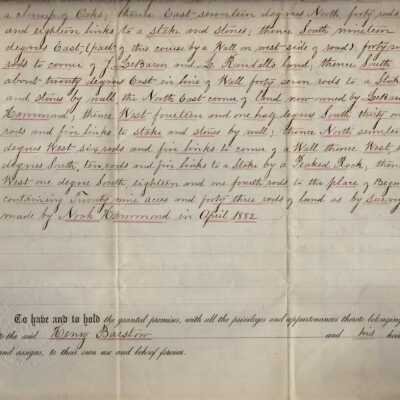 a clump of Oaks; thence East seventeen degrees North forty rods
and eighteen links to a stake and stones; thence South nineteen
degrees East, (part of this course by a Wall on west side of road),
rods to corner of J. LeBaron and L. Randalls land; thence South
about twenty degrees East in line of Wall forty seven rods to a Stake
and stones by wall, the North East corner of land now owned by
Hammond; thence West fourteen and one half degrees South thirty
rods and five links to stake and stones by wall; thence North
degrees West six rods and five links to corner of a Wall thence West
degrees South, ten rods and five links to a Stake by a Rock,
West one degree South eighteen and one fourth rods to the place of
containing Twenty nine acres and forty three rods of land as by survey
made by Noah Hammond in April 1882.
To have and to hold the granted premises, with all the privileges and appurtenances thereto belonging
to the said Henry Barstow and his
and assigns, to their own use and behoof forever.